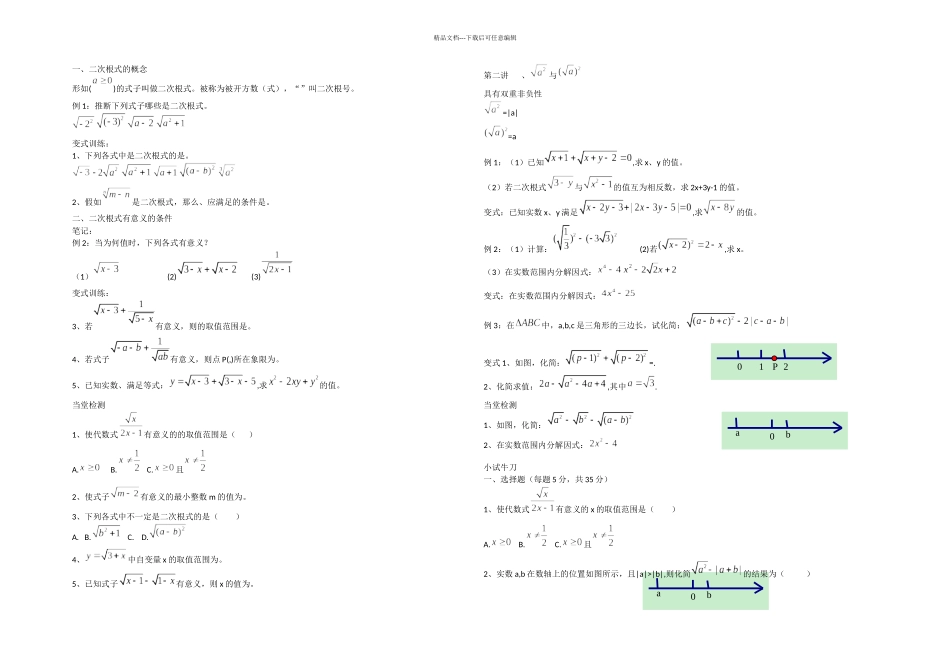 精品文档---下载后可任意编辑
一、二次根式的概念
形如( a ≥0 )的式子叫做二次根式。被称为被开方数（式），“ ”叫二次根号。
例 1：推断下列式子哪些是二次根式。
√-2² √(-3)² √a-2 √a²+1
变式训练：
1、下列各式中是二次根式的是。
√-3 -2√a² √a²+1 √a+1 √(a-b)² ∛a²
2、假如 ⁿ√m-n 是二次根式，那么、应满足的条件是。
二、二次根式有意义的条件
笔记：
例 2：当为何值时，下列各式有意义？
（1）√x-3 (2) √3-x+√x-2 (3) 1/√2x-1
变式训练：
3、若 √x-3+1/√5-x 有意义，则的取值范围是。
4、若式子 √-a-b+1/√ab 有意义，则点 P(,)所在象限为。
5、已知实数、满足等式： y=√x-3+√3-x-5 ,求 x²-2xy+y² 的值。
当堂检测
1、使代数式 √x/2x-1 有意义的的取值范围是（ ）
A. x≥0 B. x≠1/2 C. x≥0 且 x≠1/2
2、使式子 √m-2 有意义的最小整数 m 的值为。
3、下列各式中不一定是二次根式的是（ ）
A. B. √b²+1 C. D. √(a-b)²
4、 y=√3+x 中自变量 x 的取值范围为。
5、已知式子 √x-1-√1-x 有意义，则 x 的值为。
第二讲 、√a² 与 (√a)²
具有双重非负性
√a² =|a|
(√a)² =a
例 1：（1）已知 √x+1+√x+y-2=0 ,求 x、y 的值。
（2）若二次根式 √3-y 与 √x²-1 的值互为相反数，求 2x+3y-1 的值。
变式：已知实数 x、y 满足 √x-2y-3+|2x-3y-5|=0 ,求 √x-8y 的值。
例 2：（1）计算： (√1/3)²-(-3√3)² (2)若 √(x-2)²=2-x ,求 x。
（3）在实数范围内分解因式： x⁴-4 x²-2√2x+2
变式：在实数范围内分解因式： 4x⁴-25
例 3：在 △ABC 中，a,b,c 是三角形的三边长，试化简： √(a-b+c)²-2|c-a-b|
变式 1、如图，化简： √(p-1)²+√(p-2)² =.
0 1 P 2
2、化简求值： 2a-√a²-4a+4 ,其中 a=√3 .
当堂检测
1、如图，化简： √a²-√b²-√(a-b)²
a 0 b
2、在实数范围内分解因式： 2x²-4
小试牛刀
一、选择题（每题 5 分，共 35 分）
1、使代数式 √x/2x-1 有意义的 x 的取值范围是（ ）
A. x≥0 B. x≠1/2 C. x≥0 且 x≠1/2
2、实数 a,b 在数轴上的位置如图所示，且|a|>|b|,则化简 √a²-|a+b| 的结果为（ ）
a 0 b